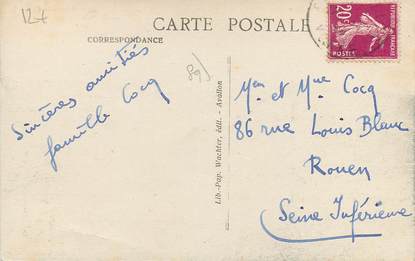 127
CARTE POSTALE
CORRESPONDANCE
Sincères amitiés
famille Cocq
89)
Lib.-Pap. Wachter, édit. - Avallon
20c
POSTES
Mr et Mme Cocq
86 rue Louis Blanc
Rouen
Seine Inférieure